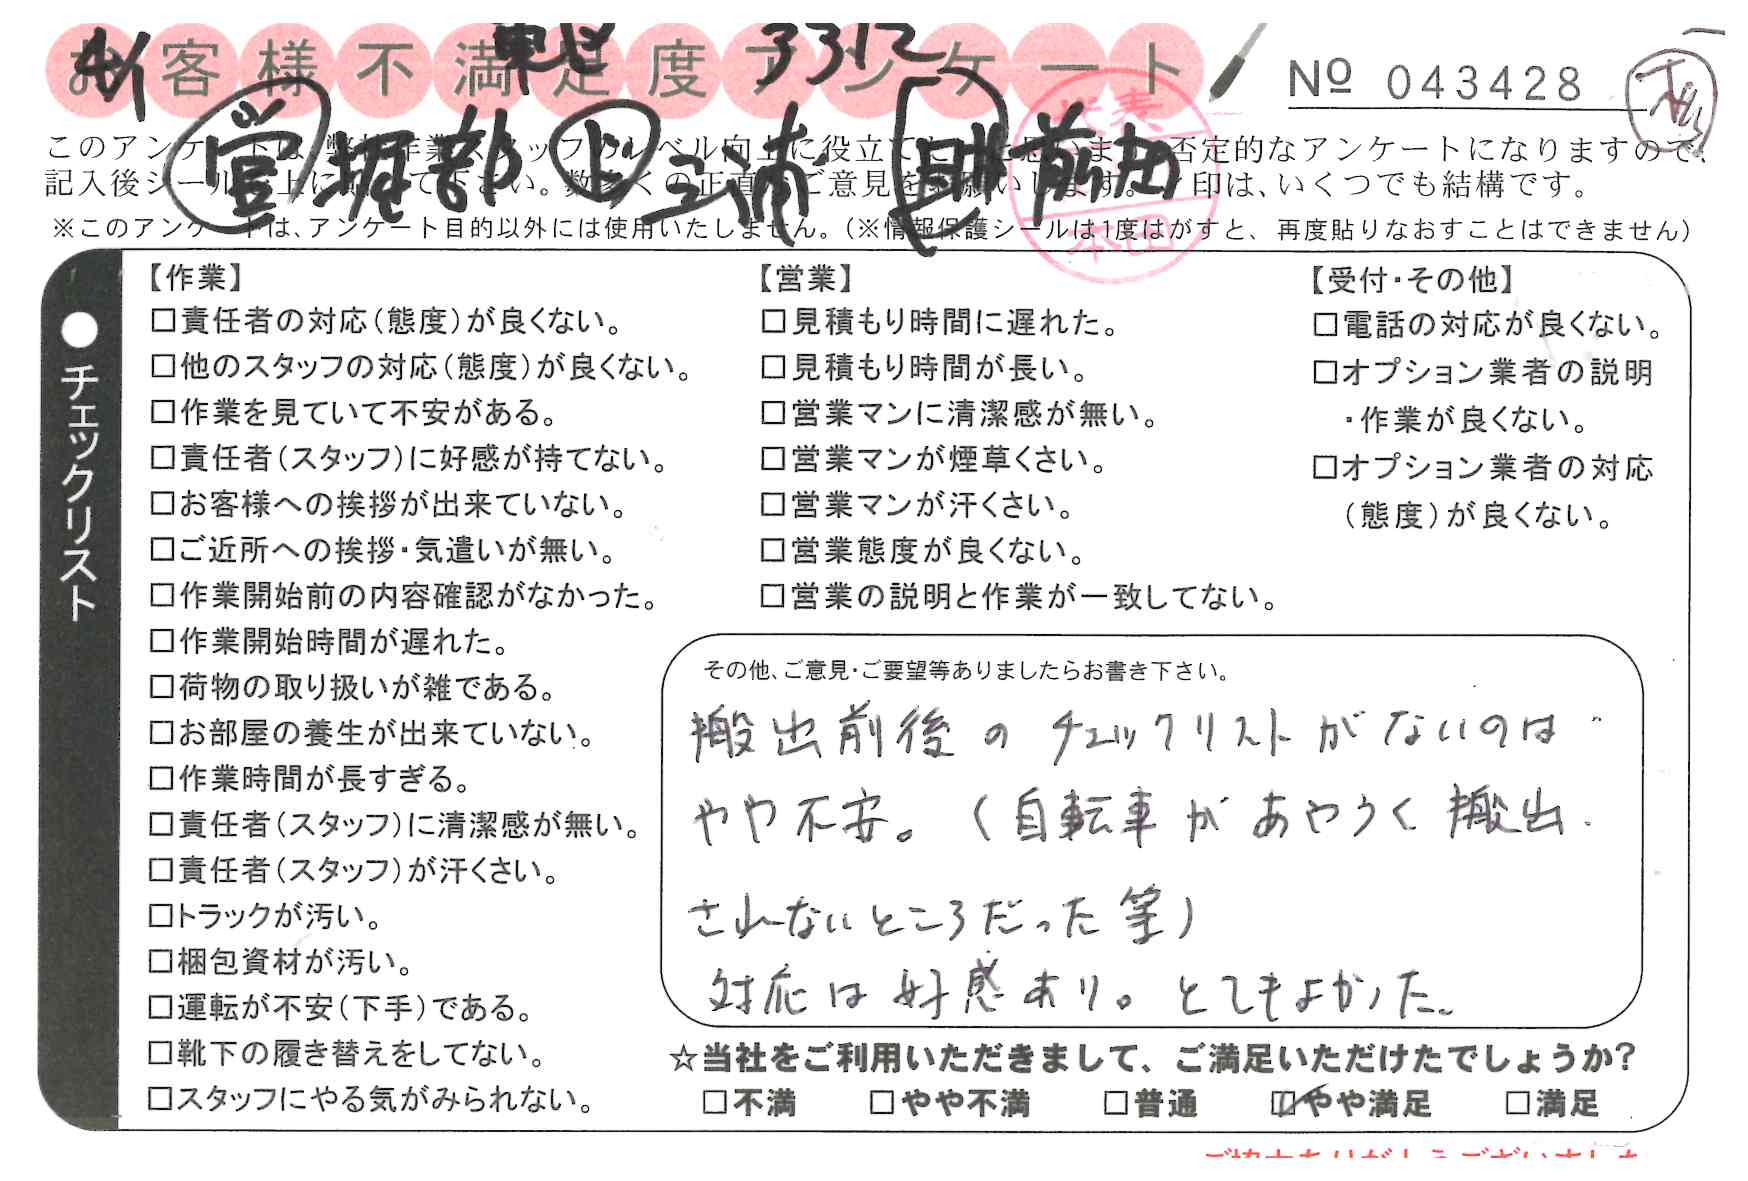 お客様不満足度アンケート
4/1 3312
Nº 043428
営 堀部 上 三浦 助 前田
代表
本田
このアンケートは、弊社作業スタッフのレベル向上に役立てたいと思います。否定的なアンケートになりますので、
記入後シールを上に貼って下さい。数多くの正直なご意見をお願いします。レ印は、いくつでも結構です。
※このアンケートは、アンケート目的以外には使用いたしません。（※情報保護シールは1度はがすと、再度貼りなおすことはできません）
●チェックリスト
【作業】
□責任者の対応（態度）が良くない。
□他のスタッフの対応（態度）が良くない。
□作業を見ていて不安がある。
□責任者（スタッフ）に好感が持てない。
□お客様への挨拶が出来ていない。
□ご近所への挨拶・気遣いが無い。
□作業開始前の内容確認がなかった。
□作業開始時間が遅れた。
□荷物の取り扱いが雑である。
□お部屋の養生が出来ていない。
□作業時間が長すぎる。
□責任者（スタッフ）に清潔感が無い。
□責任者（スタッフ）が汗くさい。
□トラックが汚い。
□梱包資材が汚い。
□運転が不安（下手）である。
□靴下の履き替えをしてない。
□スタッフにやる気がみられない。
【営業】
□見積もり時間に遅れた。
□見積もり時間が長い。
□営業マンに清潔感が無い。
□営業マンが煙草くさい。
□営業マンが汗くさい。
□営業態度が良くない。
□営業の説明と作業が一致してない。
【受付・その他】
□電話の対応が良くない。
□オプション業者の説明
・作業が良くない。
□オプション業者の対応
（態度）が良くない。
その他、ご意見・ご要望等ありましたらお書き下さい。
搬出前後のチェックリストがないのは
やや不安。（自転車があやうく搬出
されないところだった等）
対応は好感あり。とてもよかった。
☆当社をご利用いただきまして、ご満足いただけたでしょうか？
□不満 □やや不満 □普通 ☑やや満足 □満足
ご協力ありがとうございました